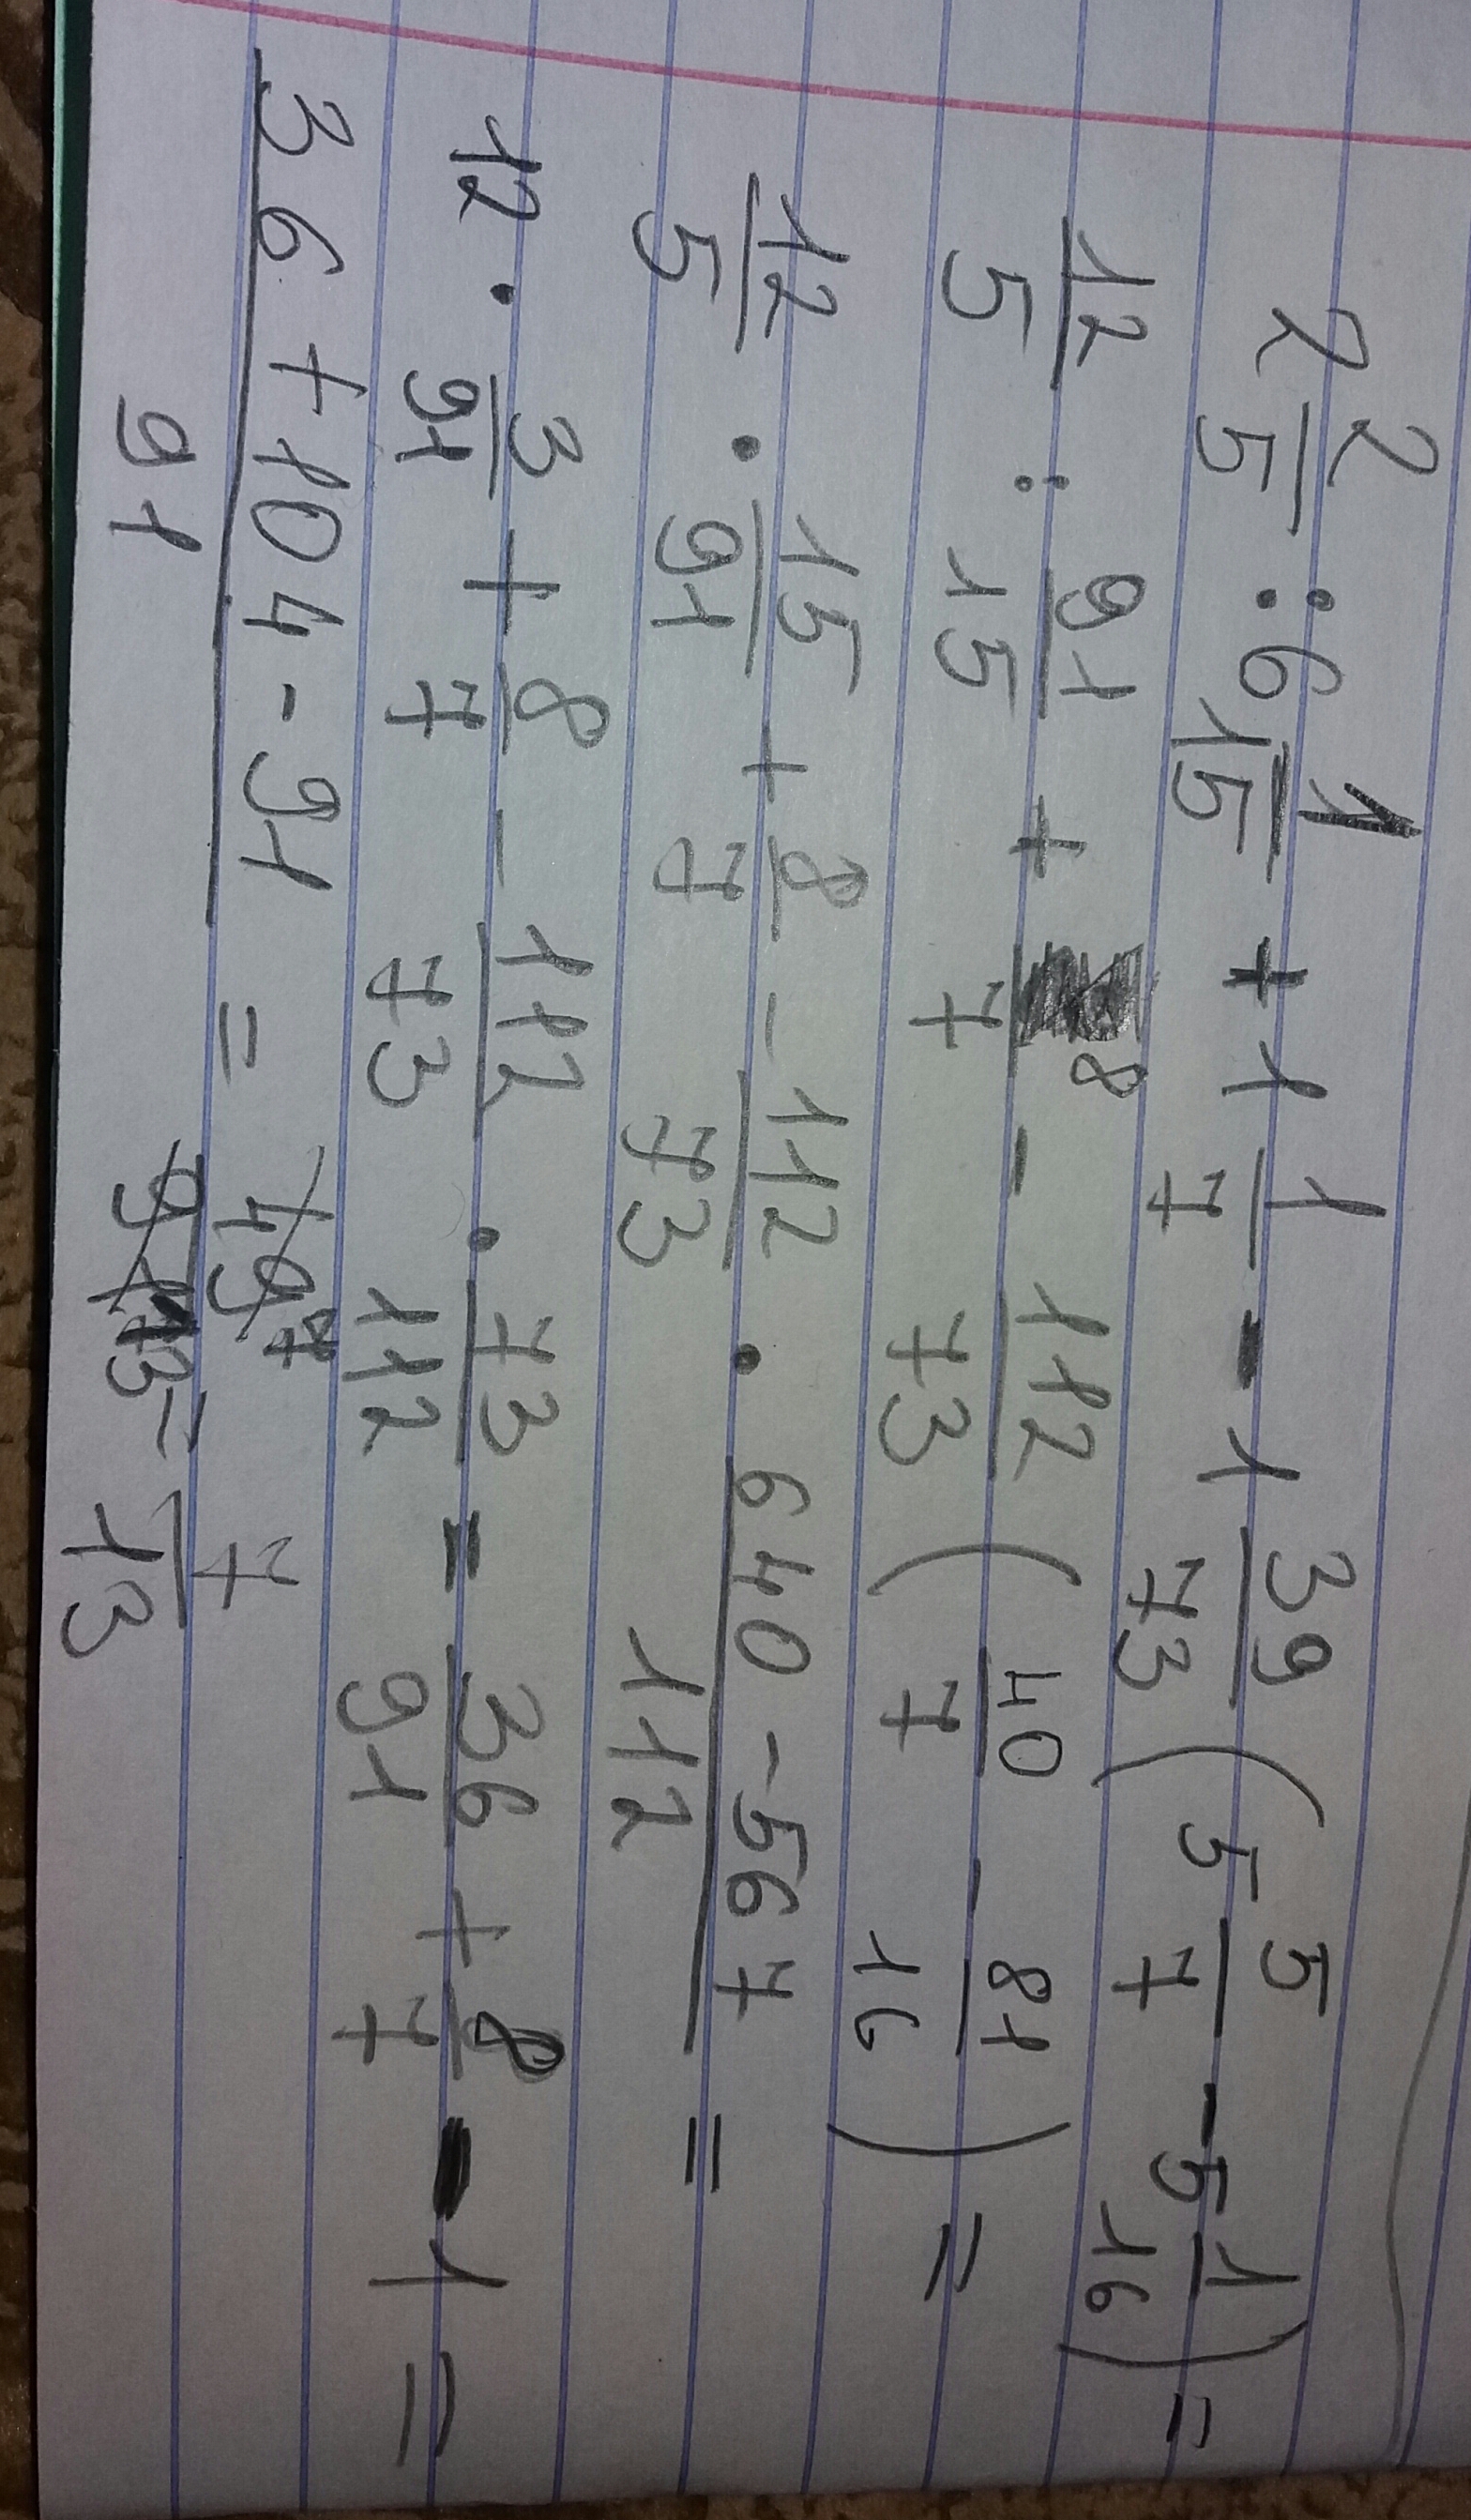 2 2/5 : 6 1/15 + 1 1/7 - 1 39/73 (5 5/7 - 5 1/16) =
12/5 : 91/15 + 8/7 - 112/73 (40/7 - 81/16) =
12/5 · 15/91 + 8/7 - 112/73 · 640-567/112 =
12 · 3/91 + 8/7 - 112/73 · 73/112 = 36/91 + 8/7 - 1 =
36+104-91/91 = 49 7/91 13 = 7/13